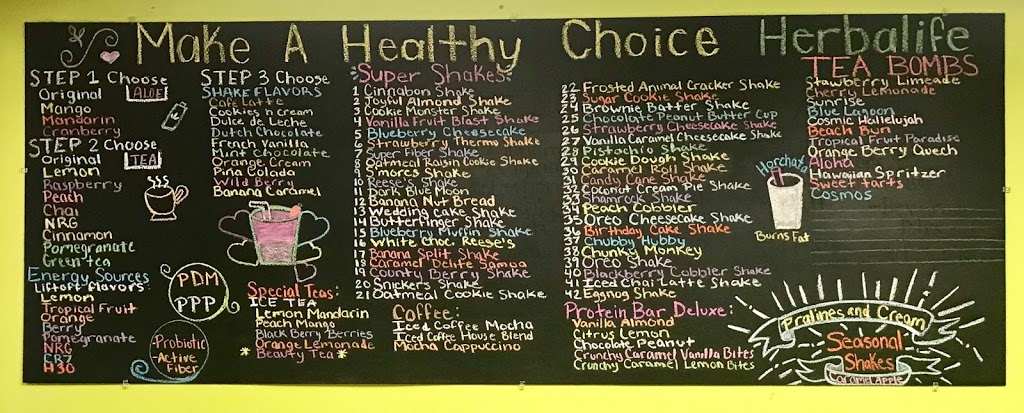 Make A Healthy Choice Herbalife
STEP 1 Choose
Original ALOE
Mango
Mandarin
Cranberry
STEP 2 Choose
Original TEA
Lemon
Raspberry
Peach
Chai
NRG
Cinnamon
Pomegranate
Green tea
Energy Sources
Liftoff flavors:
Lemon
Tropical Fruit
Orange
Berry
Pomegranate
NRG
CR7
H30
STEP 3 Choose
SHAKE FLAVORS
Cafe Latte
Cookies n cream
Dulce de Leche
Dutch Chocolate
French Vanilla
Mint Chocolate
Orange Cream
Pina Colada
Wild Berry
Banana Caramel
PDM
PPP
Probiotic
-Active
Fiber
Special Teas:
ICE TEA
Lemon Mandarin
Peach Mango
Black Berry Berries
Orange Lemonade
* Beauty Tea *
Super Shakes
1 Cinnabon Shake
2 Joyful Almond Shake
3 Cookie Monster Shake
4 Vanilla Fruit Blast Shake
5 Blueberry Cheesecake
6 Strawberry Thermo Shake
7 Super Fiber Shake
8 Oatmeal Raisin Cookie Shake
9 S'mores Shake
10 Reese's Shake
11 Dark Blue Moon
12 Banana Nut Bread
13 Wedding cake Shake
14 Butterfinger Shake
15 Blueberry Muffin Shake
16 White Choc. Reese's
17 Banana Split Shake
18 Caramel Delite Samoa
19 County Berry Shake
20 Snickers Shake
21 Oatmeal Cookie Shake
Coffee:
Iced Coffee Mocha
Iced Coffee House Blend
Mocha Cappuccino
22 Frosted Animal Cracker Shake
23 Sugar Cookie Shake
24 Brownie Batter Shake
25 Chocolate Peanut Butter Cup
26 Strawberry Cheesecake Shake
27 Vanilla Caramel Cheesecake Shake
28 Pistachio Shake
29 Cookie Dough Shake
30 Caramel Roll Shake
31 Candy Cane Shake
32 Coconut Cream Pie Shake
33 Shamrock Shake
34 Peach Cobbler
35 Oreo Cheesecake Shake
36 Birthday Cake Shake
37 Chubby Hubby
38 Chunky Monkey
39 Oreo Shake
40 Blackberry Cobbler Shake
41 Iced Chai Latte Shake
42 Eggnog Shake
Protein Bar Deluxe:
Vanilla Almond
Citrus Lemon
Chocolate Peanut
Crunchy Caramel Vanilla Bites
Crunchy Caramel Lemon Bites
Horchata
Burns Fat
TEA BOMBS
Stawberry Limeade
Cherry Lemonade
Sunrise
Blue Lagoon
Cosmic Hallelujah
Beach Bum
Tropical Fruit Paradise
Orange Berry Quech
Aloha
Hawaiian Spritzer
Sweet tarts
Cosmos
Pralines and Cream
Seasonal
Shakes
Caramel Apple